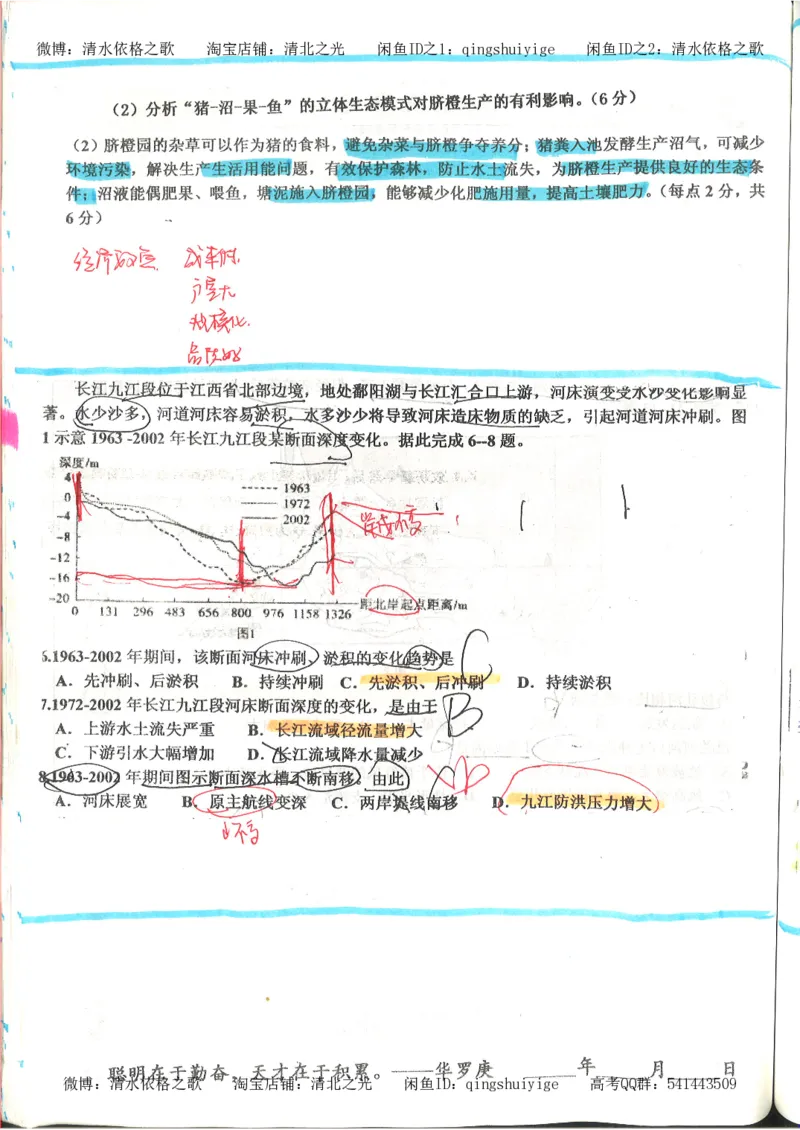 微博：清水依格之歌 淘宝店铺：清北之光 闲鱼ID之1：qingshuiyige 闲鱼ID之2：清水依格之歌
（2）分析“猪-沼-果-鱼”的立体生态模式对脐橙生产的有利影响。（6分）
（2）脐橙园的杂草可以作为猪的食料，避免杂菜与脐橙争夺养分；猪粪入池发酵生产沼气，可减少
环境污染，解决生产生活用能问题，有效保护森林，防止水土流失，为脐橙生产提供良好的生态条
件；沼液能偶肥果、喂鱼，塘泥施入脐橙园，能够减少化肥施用量，提高土壤肥力。（每点2分，共
6分）
经济效益 成本低
产量大
规模化
长江九江段位于江西省北部边境，地处鄱阳湖与长江汇合口上游，河床演变受水沙变化影响显
著。水少沙多，河道河床容易淤积，水多沙少将导致河床造床物质的缺乏，引起河道河床冲刷。图
1示意1963-2002年长江九江段某断面深度变化。据此完成6--8题。
深度/m
4
0
-4
-8
-12
-16
-20
1963
1972
2002
0 131 296 483 656 800 976 1158 1326 距北岸起点距离/m
图1
6.1963-2002年期间，该断面河床冲刷、淤积的变化趋势是 C
A．先冲刷、后淤积 B．持续冲刷 C．先淤积、后冲刷 D．持续淤积
7.1972-2002年长江九江段河床断面深度的变化，是由于 B
A．上游水土流失严重 B．长江流域径流量增大
C．下游引水大幅增加 D．长江流域降水量减少
8.1963-2002年期间图示断面深水槽不断南移。由此
A．河床展宽 B．原主航线变深 C．两岸堤线南移 D．九江防洪压力增大
聪明在于勤奋，天才在于积累。——华罗庚 年 月 日
微博：清水依格之歌 淘宝店铺：清北之光 闲鱼ID：qingshuiyige 高考QQ群：541443509